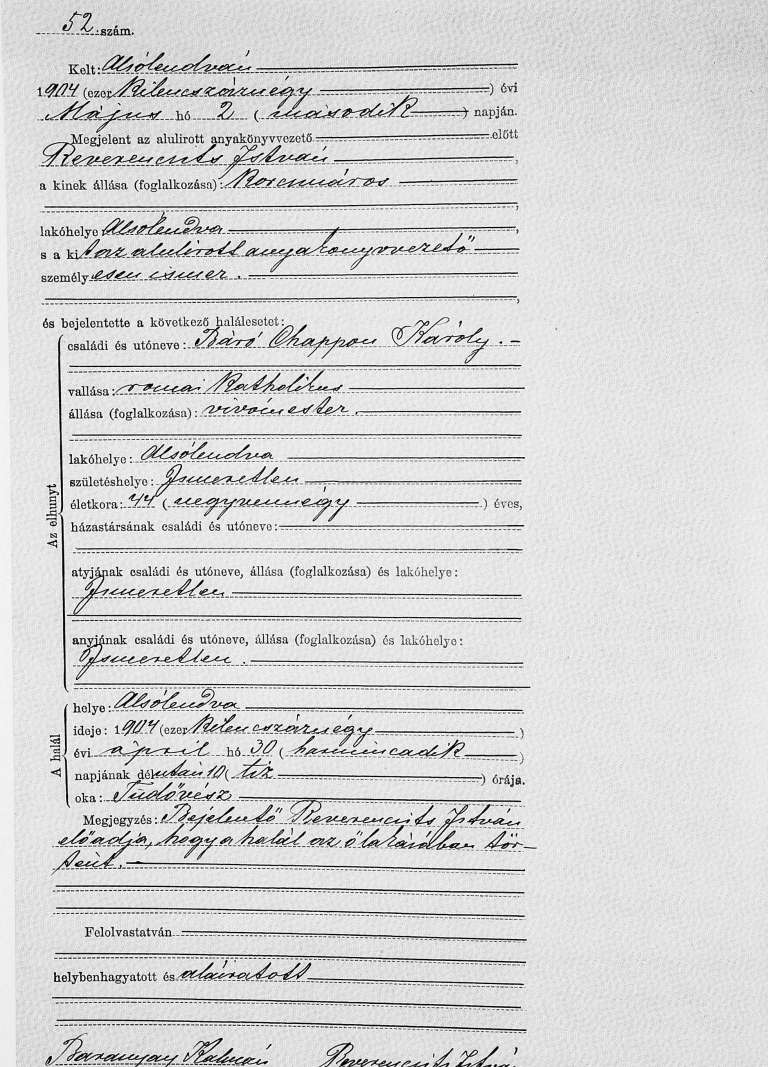 52 szám.
Kelt: Alsólendván
1904 (ezer kilencszáznégy) évi
Május hó 2 (második) napján.
Megjelent az alulirott anyakönyvvezető előtt
Reverencsits István,
a kinek állása (foglalkozása): korcsmáros
,
lakóhelye: Alsólendva,
s a kit az alulirott anyakönyvvezető
személyesen ismer.
,
és bejelentette a következő halálesetet:
Az elhunyt
családi és utóneve: Báró Chappon Károly.
vallása: romai katholikus
állása (foglalkozása): vivómester.
lakóhelye: Alsólendva
születéshelye: Ismeretlen
életkora: 44 (negyvennégy) éves,
házastársának családi és utóneve:
atyjának családi és utóneve, állása (foglalkozása) és lakóhelye:
Ismeretlen
anyjának családi és utóneve, állása (foglalkozása) és lakóhelye:
Ismeretlen.
A halál
helye: Alsólendva
ideje: 1904 (ezer kilencszáznégy)
évi april hó 30 (harmincadik)
napjának délután 10 (tiz) órája.
oka: Tüdővész
Megjegyzés: Bejelentő Reverencsits István
előadja, hogy a halál az ő lakásában tör-
tent.
Felolvastatván
helybenhagyatott és aláiratott
Baranyay Kálmán Reverencsits István